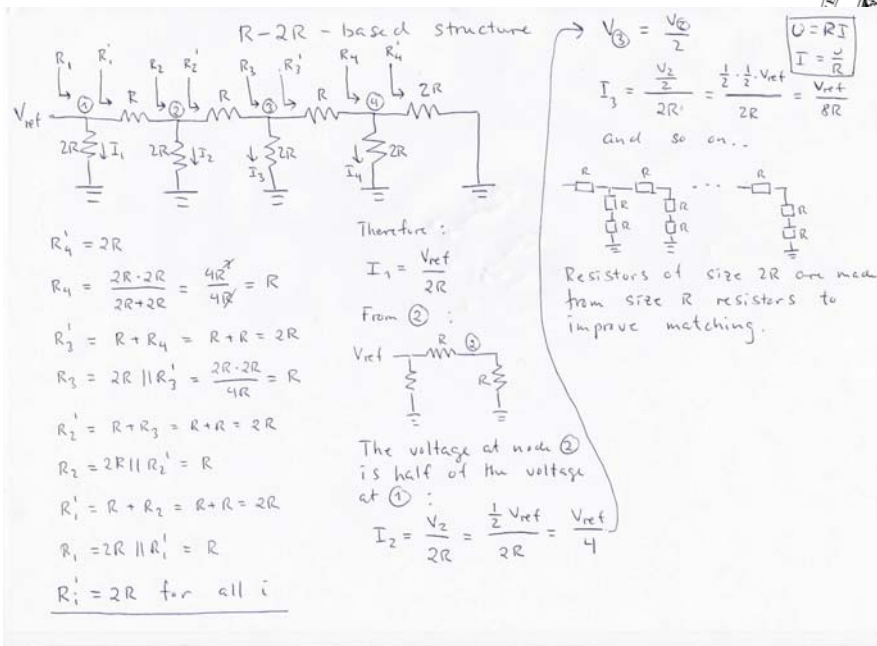 R-2R-based structure
R₁ R₁' R₂ R₂' R₃ R₃' R₄ R₄'
① R ② R ③ R ④ 2R
Vref
2R I₁ 2R I₂ I₃ 2R I₄ 2R
R₄' = 2R
R₄ = \frac{2R·2R}{2R+2R} = \frac{4R²}{4R} = R
R₃' = R + R₄ = R + R = 2R
R₃ = 2R || R₃' = \frac{2R·2R}{4R} = R
R₂' = R + R₃ = R + R = 2R
R₂ = 2R || R₂' = R
R₁' = R + R₂ = R + R = 2R
R₁ = 2R || R₁' = R
Rᵢ' = 2R for all i
Therefore :
I₁ = \frac{Vref}{2R}
From ② :
R ②
Vref
R
The voltage at node ②
is half of the voltage
at ① :
I₂ = \frac{V₂}{2R} = \frac{\frac{1}{2} Vref}{2R} = \frac{Vref}{4}
V③ = \frac{V②}{2}
U = RI
I = \frac{U}{R}
I₃ = \frac{\frac{V₂}{2}}{2R} = \frac{\frac{1}{2} · \frac{1}{2} · Vref}{2R} = \frac{Vref}{8R}
and so on..
R R ... R
R R R
R R R
Resistors of size 2R are made
from size R resistors to
improve matching.